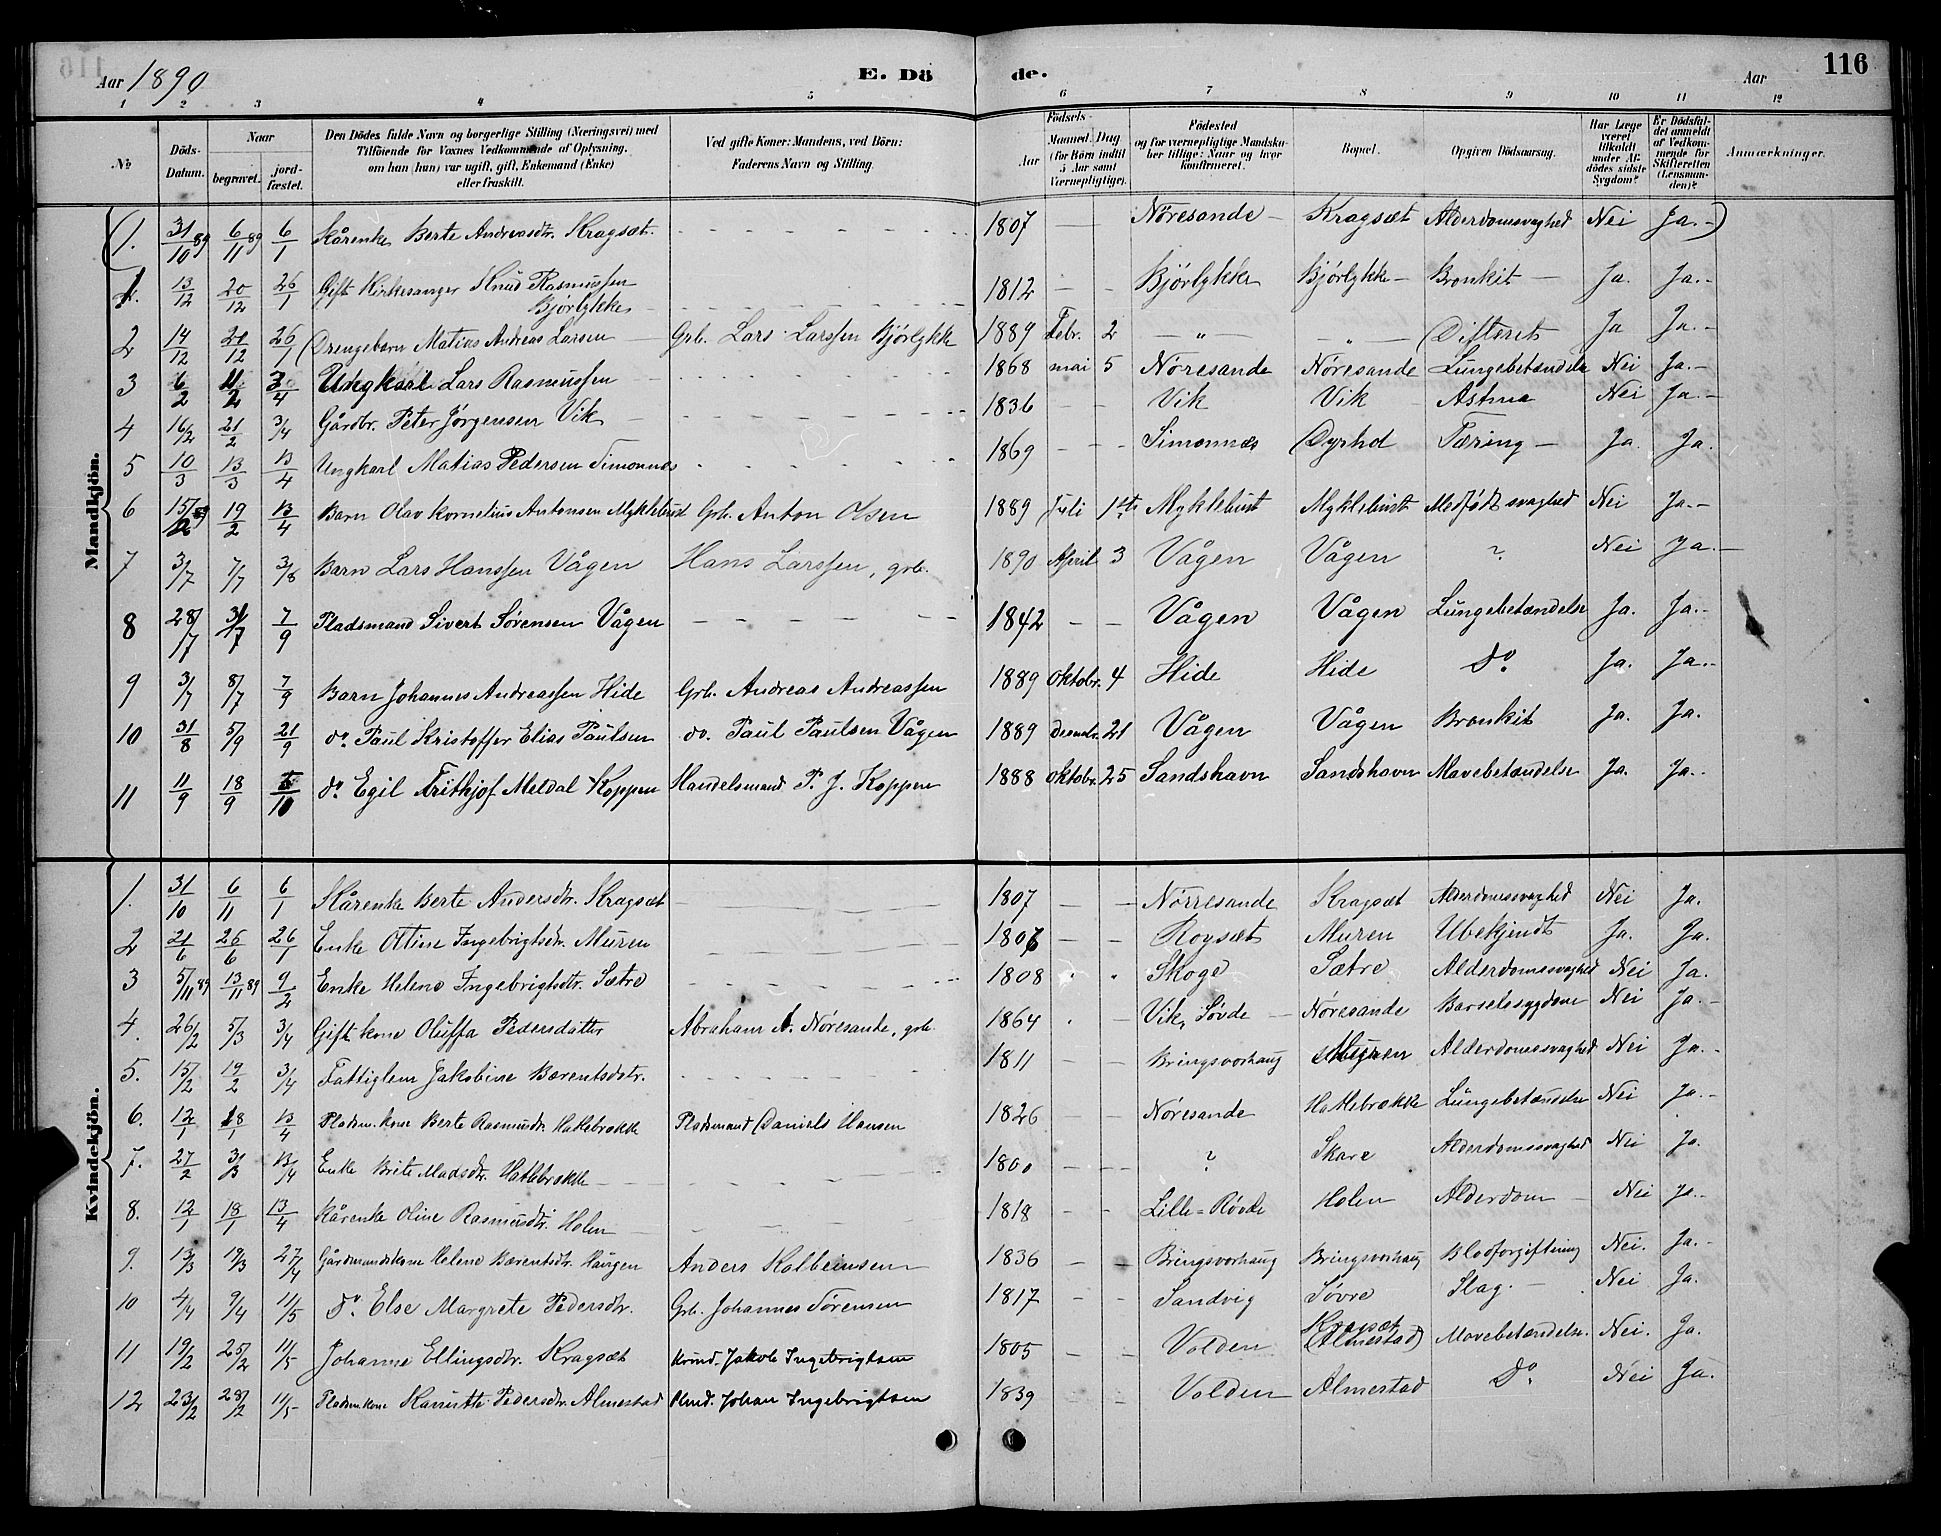 116
Aar 1890 E. Dö de. Aar
1 2 3 4 5 6 7 8 9 10 11 12
№ Döds-Datum. Naar begravet. jordfæstet. Den Dödes fulde Navn og borgerlige Stilling (Næringsvei) med Tilföiende for Voxnes Vedkommende af Oplysning, om han (hun) var ugift, gift, Enkemand (Enke) eller fraskilt. Ved gifte Koner: Mandens, ved Börn: Faderens Navn og Stilling. Födsels- Aar Maaned Dag (for Börn indtil 5 Aar samt Værnepligtige). Födested og for værnepligtige Mandskaber tillige: Naar og hvor konfirmeret. Bopæl. Opgiven Dödsaarsag. Har Læge været tilkaldt under Afdödes sidste Sygdom? Er Dödsfaldet anmeldt af Vedkommende for Skifteretten (Lensmanden)? Anmærkninger.
Mandkjön.
(1. 31/10 89 6/11 89 6/1 Kårenke Berte Andreasdtr. Kragsæt. 1807 Nøresande Kragsæt Alderdomssvaghed Nei Ja.)
1. 13/12 20/12 26/1 Gift Kirkesanger Knud Rasmussen Bjørlykke 1812 Bjørlykke Bjørlykke Bronkit Ja. Ja.
2 14/12 20/12 26/1 Drengebarn Matias Andreas Larsen Grb. Lars Larssen Bjørlykke 1889 Febr. 2 " " Difterit Ja Ja.
3 6/2 11/2 3/4 Ungkarl Lars Rasmussen 1868 mai 5 Nøresande Nøresande Lungebetændelse Nei Ja.
4 16/2 21/2 3/4 Gårdbr. Peter Jørgensen Vik 1836 Vik Vik Astma Nei Ja.
5 10/3 13/3 13/4 Ungkarl Matias Pedersen Simonnes 1869 Simonnæs Dyrhol Tæring Ja. Ja.
6 15/2 19/2 13/4 Barn Olav Kornelius Antonsen Myklebust Grb. Anton Olsen 1889 Juli 1ste Myklebust Myklebust Medfødt svaghed Nei Ja.
7 3/7 7/7 3/8 Barn Lars Hanssen Vågen Hans Larssen, grb. 1890 April 3 Vågen Vågen ? Nei Ja.
8 28/7 31/7 7/9 Pladsmand Sivert Sørensen Vågen 1842 Vågen Vågen Lungebetændelse Ja. Ja.
9 3/7 8/7 7/9 Barn Johannes Andreassen Hide Grb. Andreas Andreassen 1889 Oktobr. 4 Hide Hide Do. Ja. Ja.
10 31/8 5/9 21/9 do. Paul Kristoffer Elias Paulsen do. Paul Paulsen Vågen 1889 21 Vågen Vågen Bronkit Ja. Ja.
11 11/9 18/9 5/10 do. Egil Frithjof Meldal Koppen Handelsmand P. J. Koppen 1888 Oktobr. 25 Sandshavn Sandshavn Mavebetændelse Ja. Ja.
Kvindekjön.
1. 31/10 6/11 6/1 Kårenke Berte Andersdtr. Kragsæt 1807 Nørresande Kragsæt Alderdomssvaghed Nei Ja.
2 21/6 26/6 26/1 Enke Oline Ingebrigtsdtr. Muren 1806 Koysæt Muren Ubekjendt Ja. Ja.
3 5/11 89 13/11 89 9/2 Enke Helene Ingebrigtsdtr. Sætre 1808 Skoge Sætre Alderdomssvaghed Nei Ja.
4. 26/2 5/3 3/4 Gift kone Oluffa Pedersdatter Abraham A. Nøresande, grb. 1864 Vik, Søvde Nøresande Barselsygdom Nei Ja.
5. 15/2 19/2 3/4 Fattiglem Jakobine Bærentsdtr. 1811 Bringsvorhaug Alderdomssvaghed Nei Ja.
6. 12/1 18/1 13/4 Pladsm. kone Berte Rasmusdtr. Hatlebrække Pladsmand Daniels Hansen 1826 Nøresande Hatlebrække Lungebetændelse Nei Ja.
7. 27/2 3/3 13/4 Enke Brite Madsdtr. Hatlebrække 1800 ? Skare Alderdomssvaghed Nei Ja.
8. 12/1 18/1 13/4 Kårenke Oline Rasmusdtr. Holen 1818 Lille-Røvde Holen Alderdom Nei Ja.
9. 13/3 19/3 27/4 Gårdmandskone Helene Bærentsdtr. Haugen Anders Kolbeinsen 1836 Bringsvorhaug Bringsvorhaug Blodforgiftning Nei. Ja.
10 4/4 9/4 11/5 do. Else Margrete Pedersdtr. Grb. Johannes Sørensen 1817 Sandvig Søvre Slag. Nei Ja.
11 19/2 25/2 11/5 Johanne Ellingsdtr. Kragsæt Jakob Ingebrigtsen 1805 Volden Kragsæt (Almestad) Mavebetændelse. Nei. Ja.
12 23/2 28/2 11/5 Pladsm.kone Pedersdtr. Almestad Johan Ingebrigtsen 1839 Volden Almestad Do. Nei Ja.